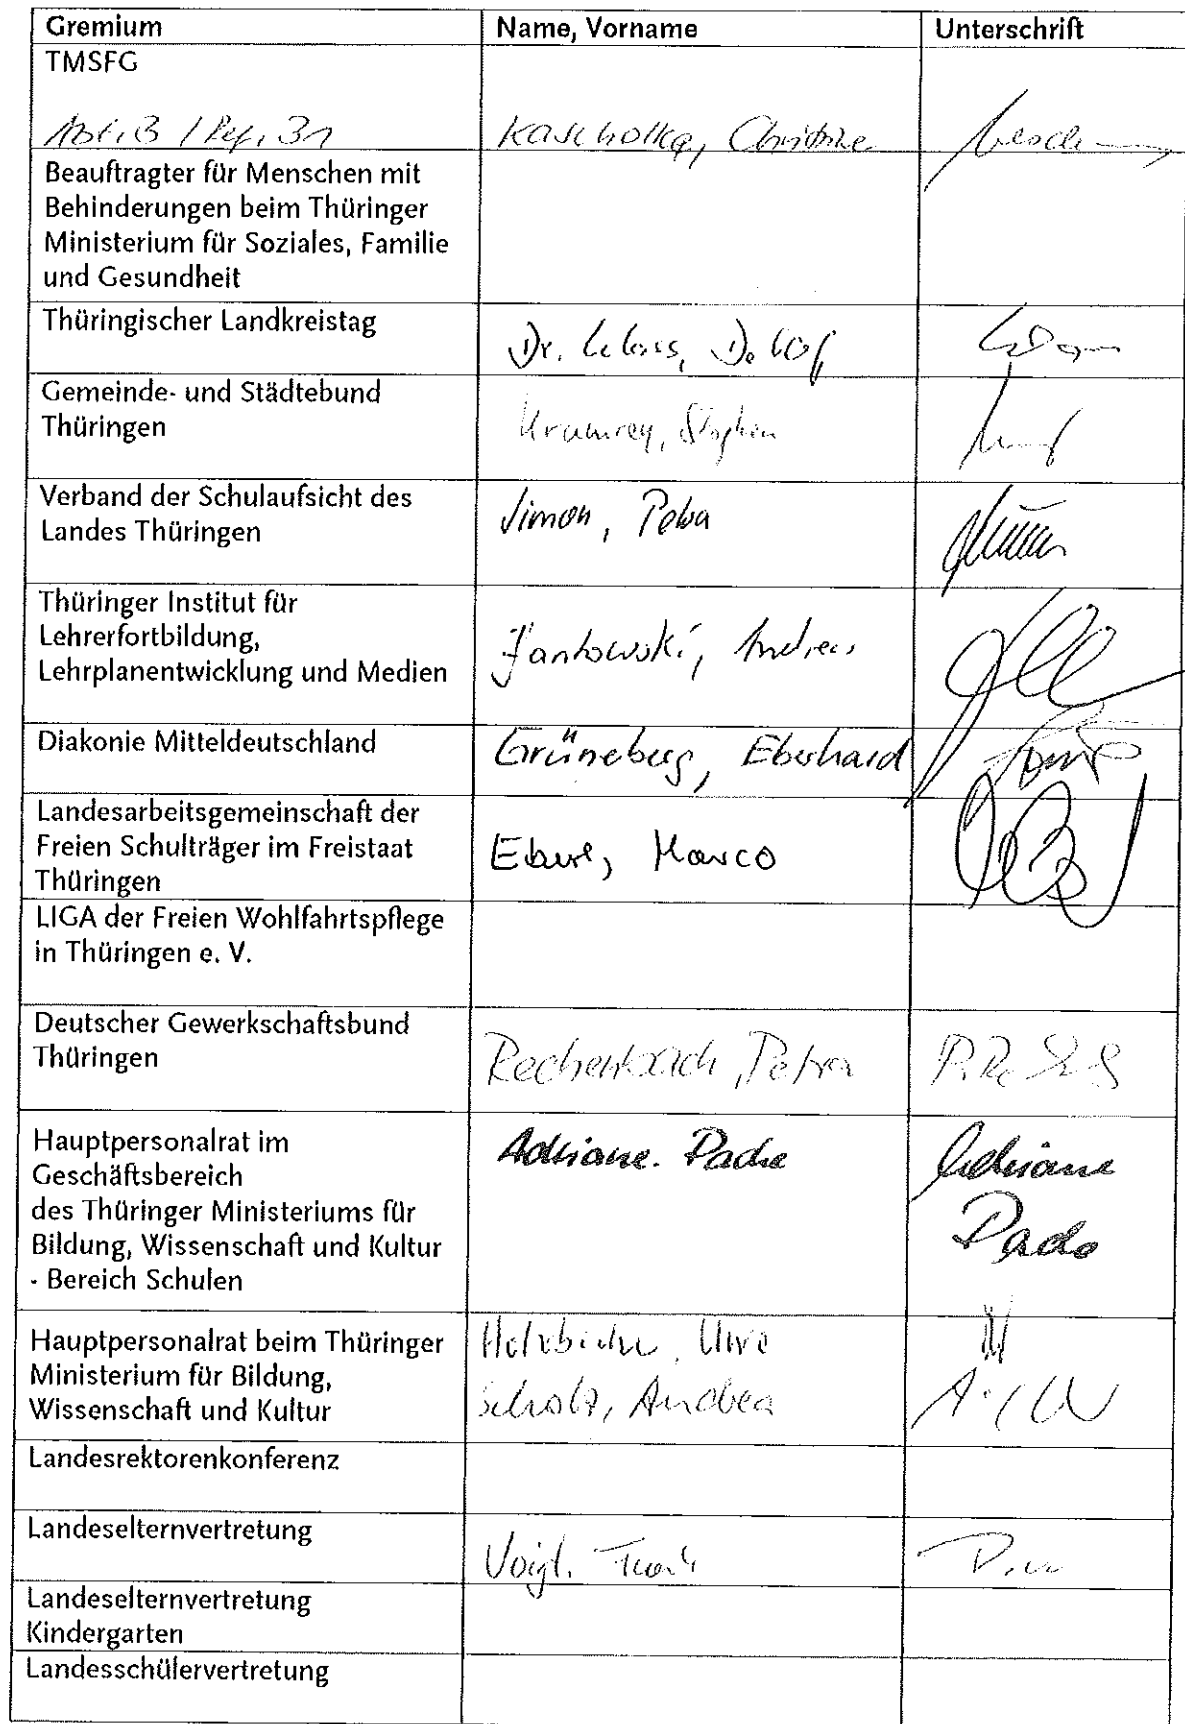 Gremium Name, Vorname Unterschrift
TMSFG
Abt. 3 / Ref. 31 Kascholke, Christine
Beauftragter für Menschen mit
Behinderungen beim Thüringer
Ministerium für Soziales, Familie
und Gesundheit
Thüringischer Landkreistag
Dr.
Gemeinde- und Städtebund
Thüringen
Verband der Schulaufsicht des
Landes Thüringen
Simon, Petra
Thüringer Institut für
Lehrerfortbildung,
Lehrplanentwicklung und Medien
Jantowski, Andreas
Diakonie Mitteldeutschland
Grüneberg, Eberhard
Landesarbeitsgemeinschaft der
Freien Schulträger im Freistaat
Thüringen
Marco
LIGA der Freien Wohlfahrtspflege
in Thüringen e. V.
Deutscher Gewerkschaftsbund
Thüringen
Rechenbach, Petra
Hauptpersonalrat im
Geschäftsbereich
des Thüringer Ministeriums für
Bildung, Wissenschaft und Kultur
- Bereich Schulen
Adriane Adriane
Hauptpersonalrat beim Thüringer
Ministerium für Bildung,
Wissenschaft und Kultur
Uwe
Scholz, Andrea
Landesrektorenkonferenz
Landeselternvertretung
Voigt,
Landeselternvertretung
Kindergarten
Landesschülervertretung